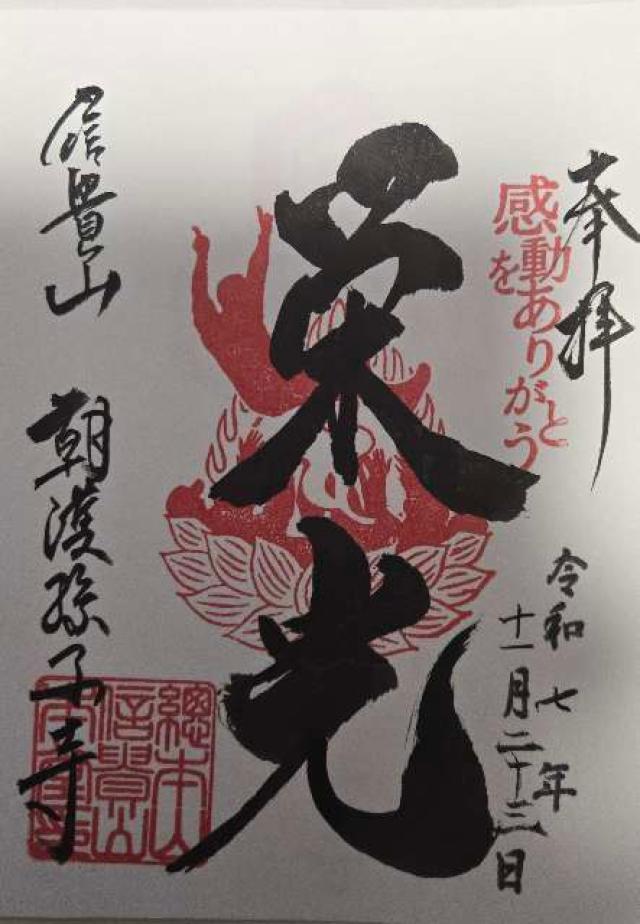 奉拝
感動を
ありがとう
令和七年
十一月二十三日
栄光
信貴山
朝護孫子寺
總本山
信貴山